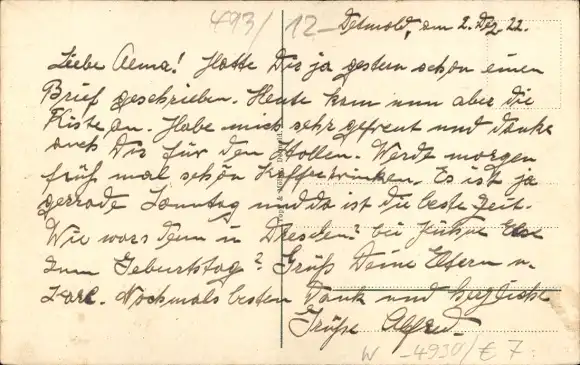 493/12
Detmold, am 2. Dez. 22.
Liebe Alma! Hatte Dir ja gestern schon einen
Brief geschrieben. Heute kam nun aber die
Kiste an. Habe mich sehr gefreut und danke
auch Dir für den Stollen. Werde morgen
früh mal schön Kaffeetrinken. Es ist ja
gerade Sonntag und da ist die beste Zeit.
Wie wars denn in Dresden? bei Else
zum Geburtstag? Grüß Deine Eltern u.
Karl. Nochmals besten Dank und herzliche
Grüße Alfred.
W -4930/€ 7